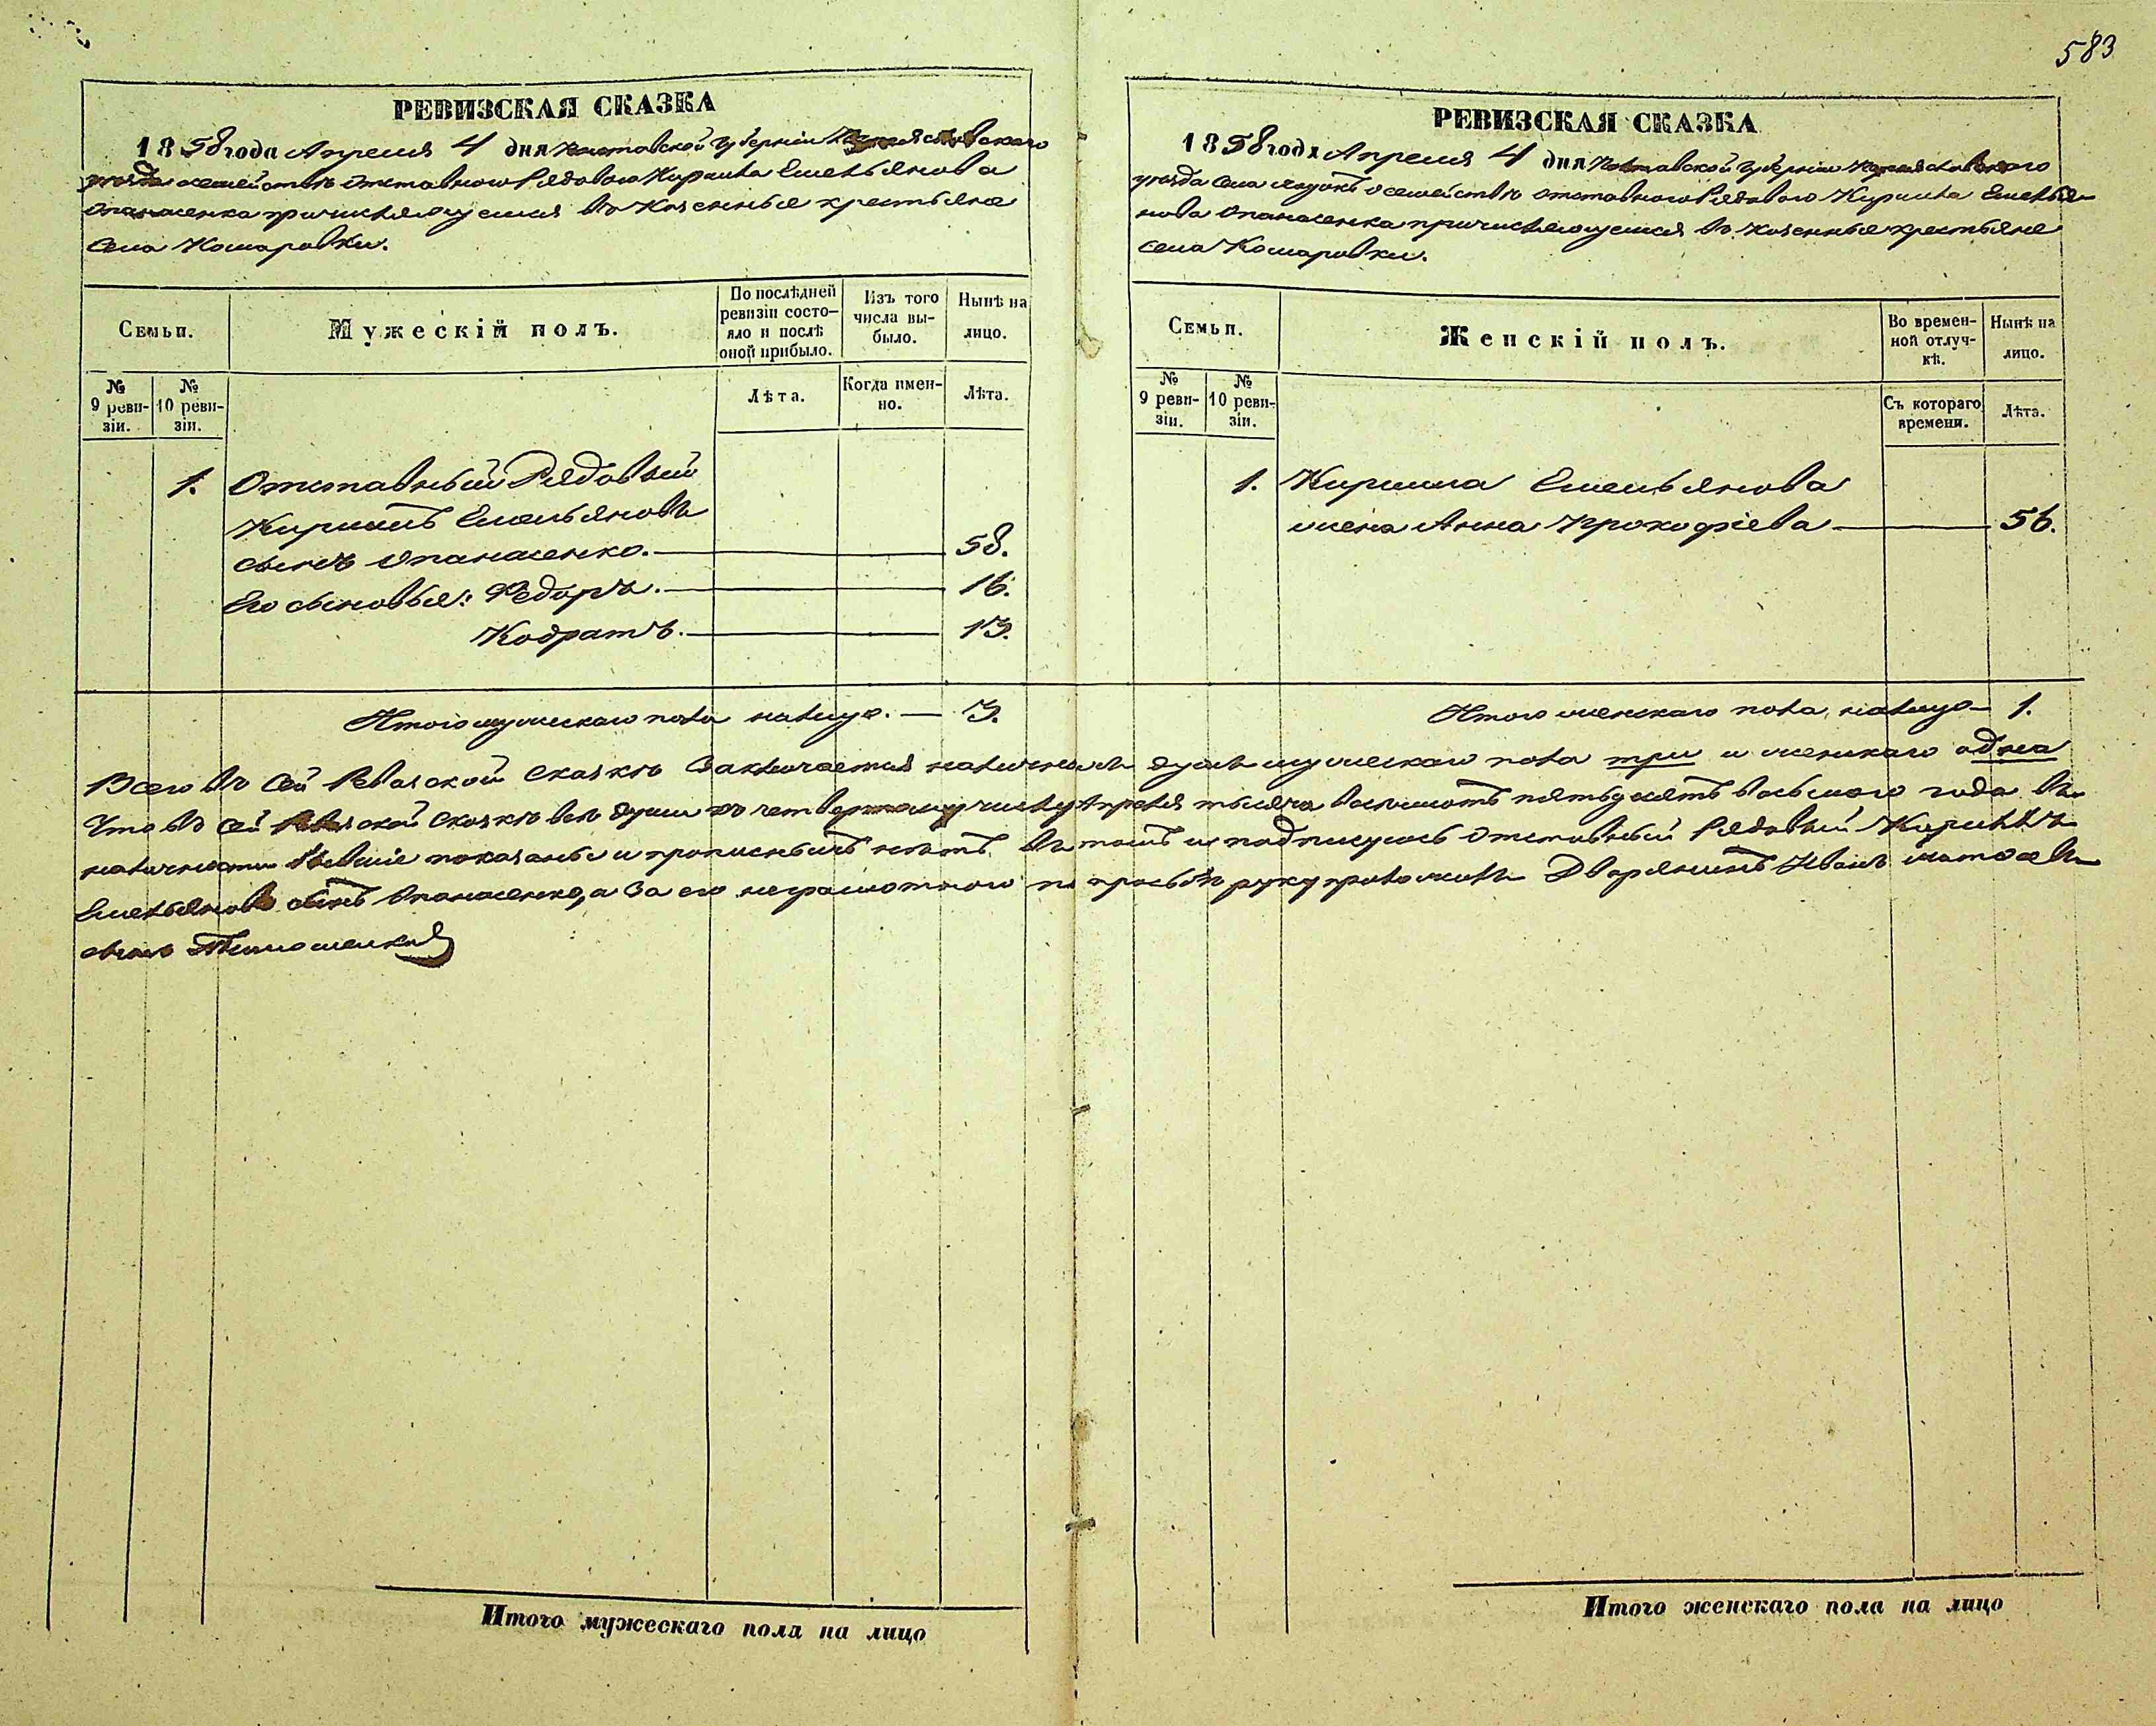 583
РЕВИЗСКАЯ СКАЗКА
1858 года Апреля 4 дня Полтавской Губерніи
уезда о семействѣ Отставного Рядового Кирилла Емельянова
Опанасенка причисляющемся въ казенные крестьяне
села Комаровки.
Семьи.
Мужескій полъ.
По послѣдней
ревизіи состо-
яло и послѣ
оной прибыло.
Изъ того
числа вы-
было.
Нынѣ на
лицо.
№
9 реви-
зіи.
№
10 реви-
зіи.
Лѣта.
Когда имен-
но.
Лѣта.
1. Отставный Рядовый
Кириллъ Емельяновъ
сынъ Опанасенко. 58.
Его сыновья: Федоръ. 16.
Кодратъ. 13.
Итого мужескаго пола налицо. — 3.
РЕВИЗСКАЯ СКАЗКА
1858 года Апреля 4 дня Полтавской Губерніи
уезда села о семействѣ отставного Рядового Кирилла Емелья-
нова Опанасенка причисляющемся въ казенные крестьяне
села Комаровки.
Семьи.
Женскій полъ.
Во времен-
ной отлуч-
кѣ.
Нынѣ на
лицо.
№
9 реви-
зіи.
№
10 реви-
зіи.
Съ котораго
времени.
Лѣта.
1. Кирилла Емельянова
жена Анна Прокофіева 56.
Итого женскаго пола налицо — 1.
Всего въ сей Ревизской сказкѣ заключается наличныхъ душъ мужескаго пола три и женскаго одна
Что въ сей Ревизской сказкѣ все души по четвертому числу Апреля тысяча восемьсотъ пятьдесятъ восьмого года въ
наличности бывшіе показаны и прописныхъ нѣтъ, въ томъ и подписуюсь Отставный Рядовый Кириллъ
Емельяновъ сынъ Опанасенко, а за его неграмотного по прозьбѣ руку приложилъ Дворянинъ Иванъ
сынъ Тимошенко
Итого мужескаго пола на лицо
Итого женскаго пола на лицо